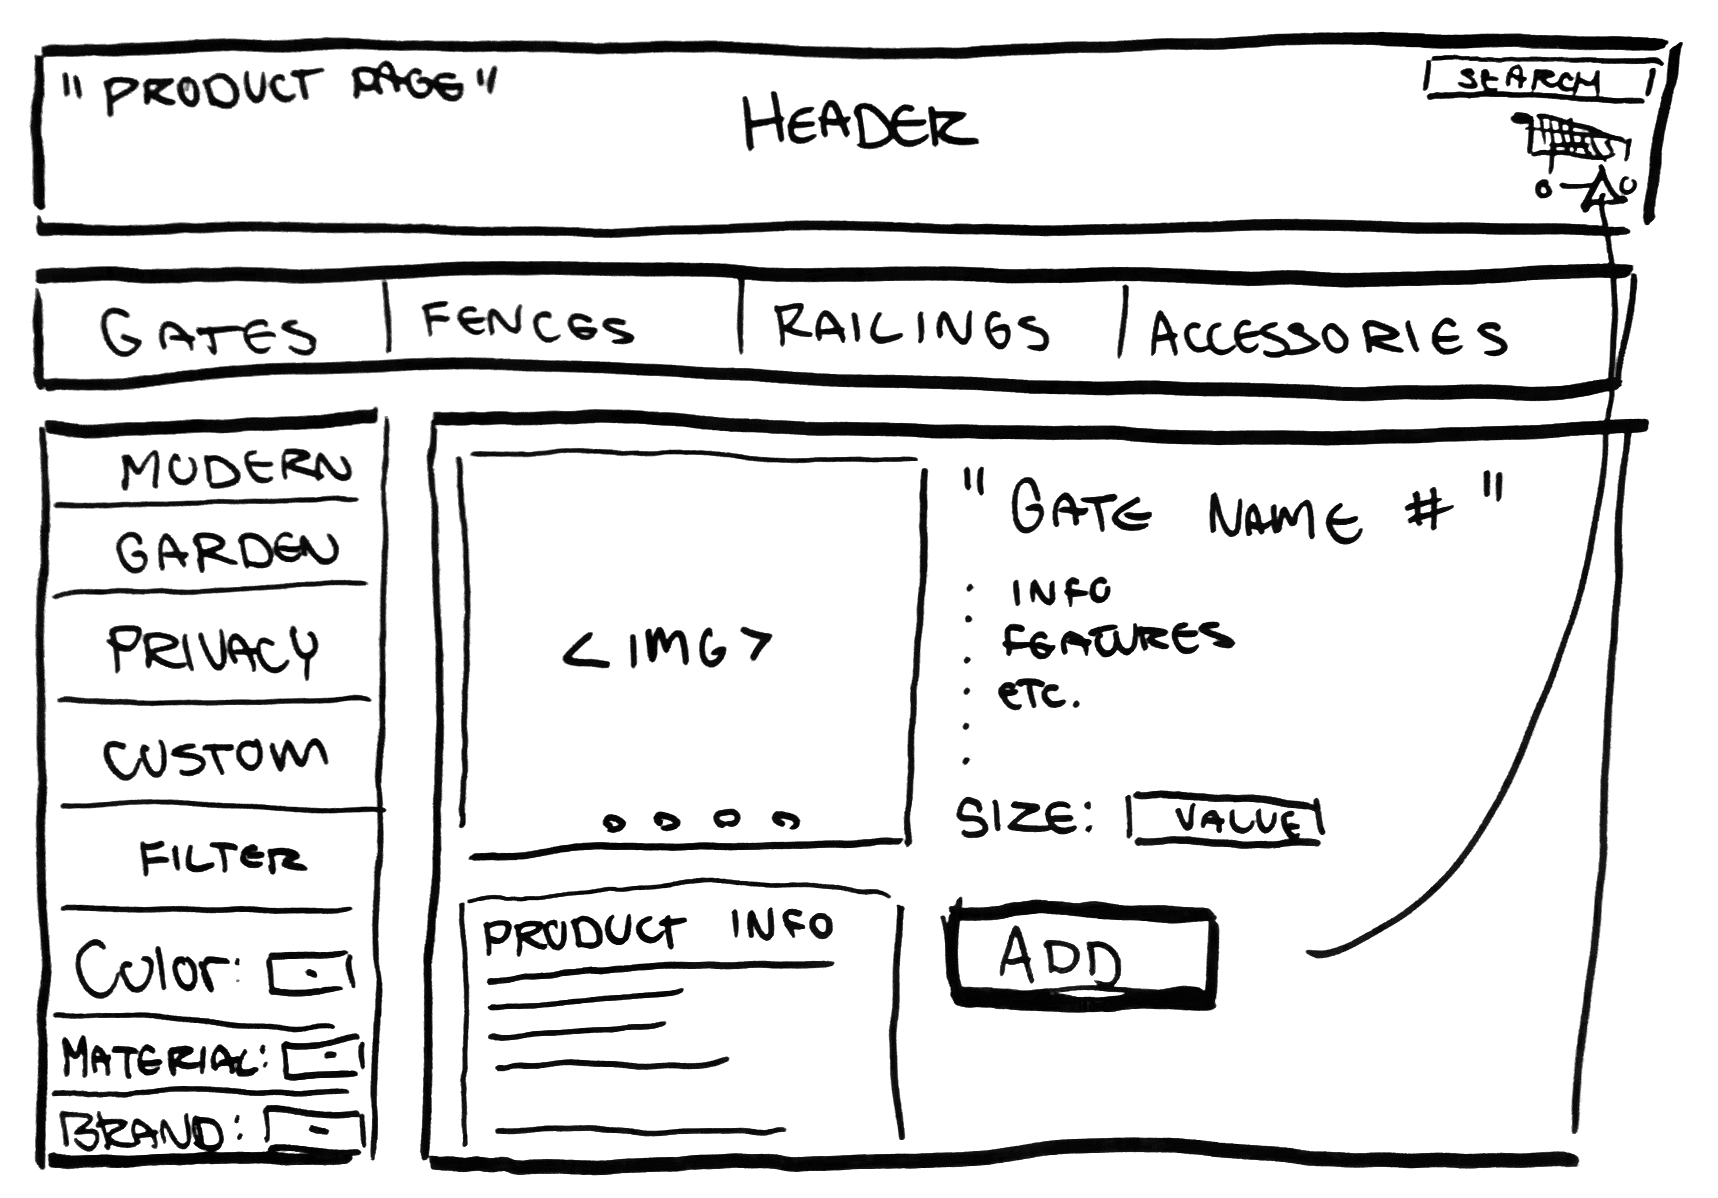 "PRODUCT PAGE"
HEADER
SEARCH
GATES
FENCES
RAILINGS
ACCESSORIES
MODERN
GARDEN
PRIVACY
CUSTOM
FILTER
Color:
MATERIAL:
BRAND:
<IMG>
"GATE NAME #"
INFO
FEATURES
eTC.
SIZE: VALUE
ADD
PRODUCT INFO